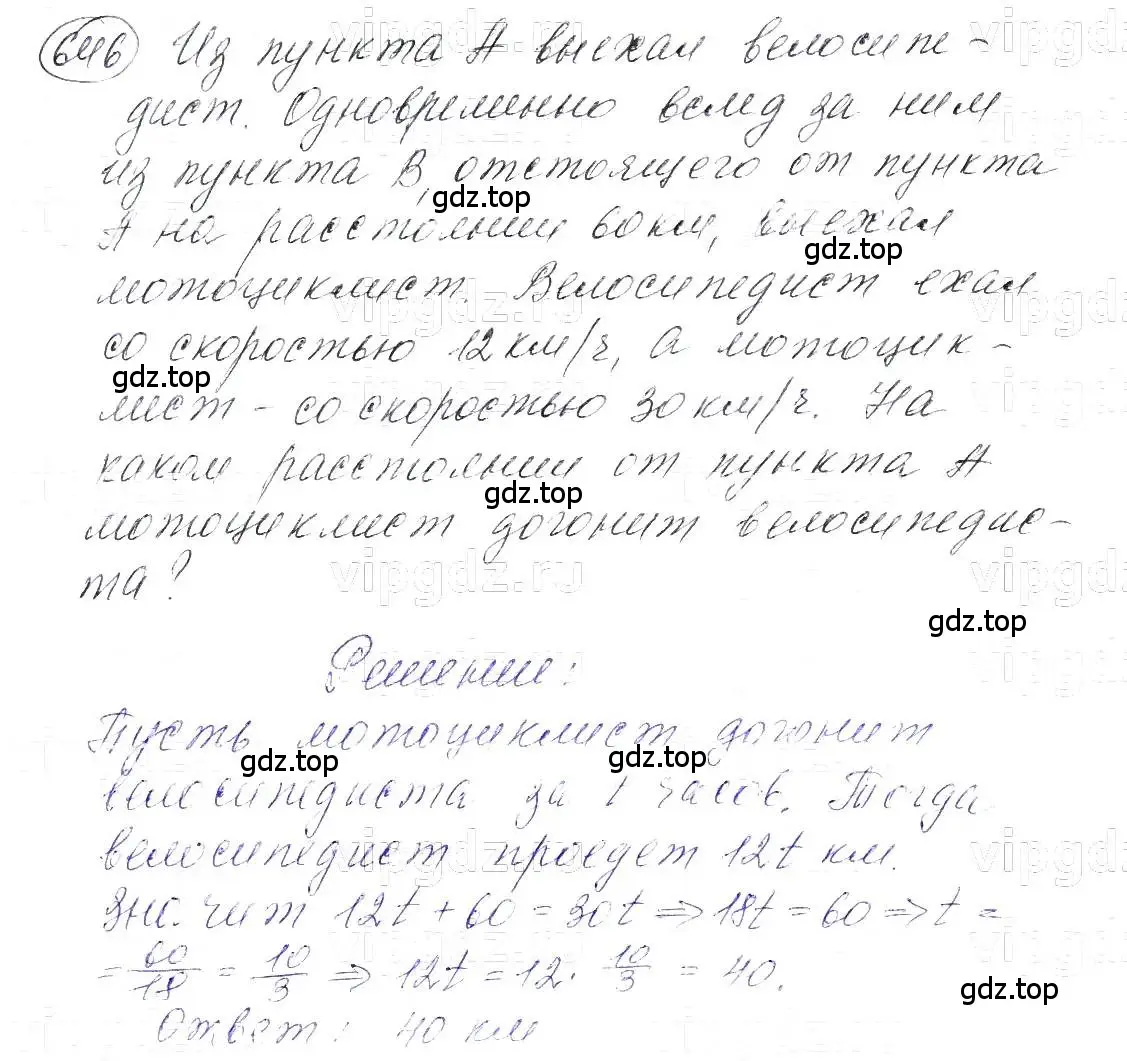 646 Из пункта А выехал велосипе-
дист. Одновременно вслед за ним
из пункта В, отстоящего от пункта
gdz.top
А на расстоянии 60 км, выехал
gdz.top
мотоциклист. Велосипедист ехал
со скоростью 12 км/ч, а мотоцик-
gdz.top
лист - со скоростью 30 км/ч. На
каком расстоянии от пункта А
gdz.top
мотоциклист догонит велосипедис-
та?
vipgdz.ru
gdz.top
Решение:
Пусть мотоциклист догонит
gdz.top gdz.top
велосипедиста за t часов. Тогда
велосипедист проедет 12t км.
Знс. чит 12t + 60 = 30t ⇒ 18t = 60 ⇒ t =
= 60/18 = 10/3 ⇒ 12t = 12 · 10/3 = 40.
gdz.top
Ответ: 40 км